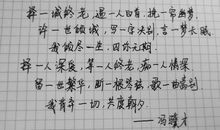 择一城终老，遇一人白首，挽一帘幽梦，
许一世倾城，写一字诀别，言一梦长眠。
我倾尽一生，囚你无期。
择一人深爱，等一人终老，痴一人情深
留一世繁华，断一根琴弦，歌一曲离别
我背弃一切，共度朝夕。
——冯骥才